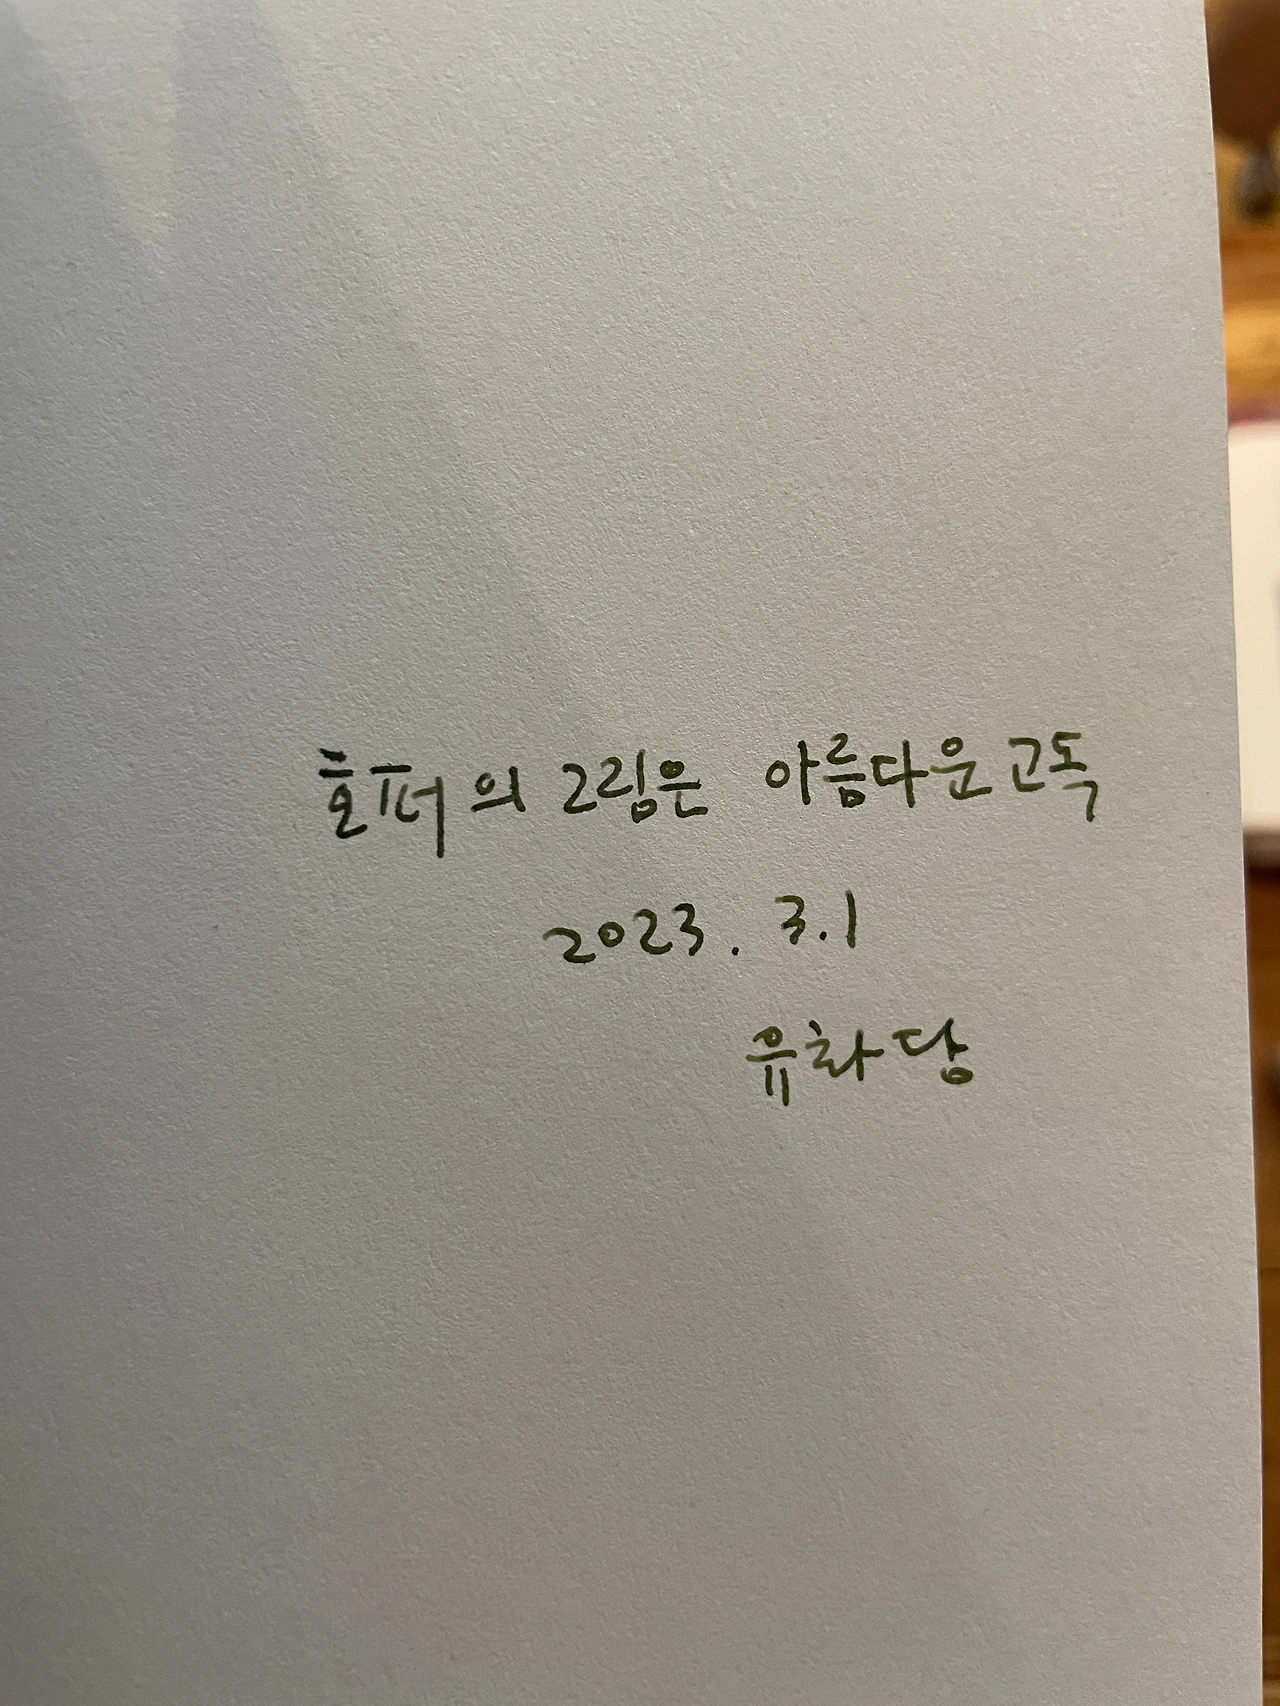 호퍼의 그림은 아름다운 고독
2023. 3.1
유화당